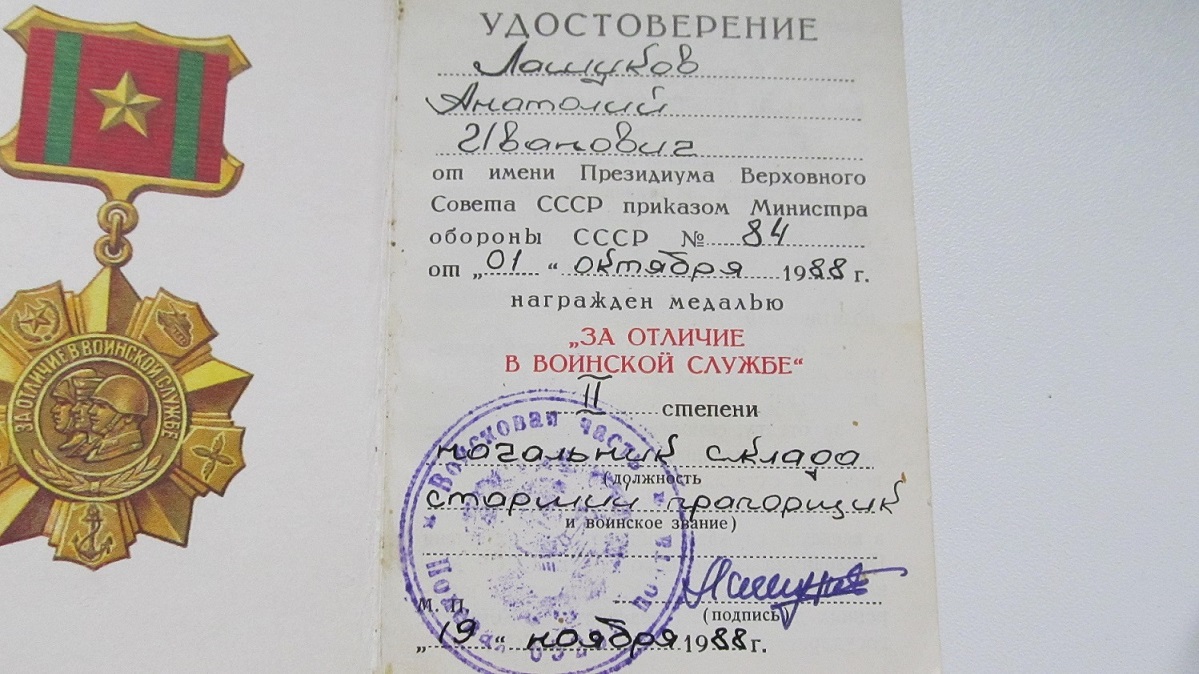 ЗА ОТЛИЧИЕ В ВОИНСКОЙ СЛУЖБЕ
УДОСТОВЕРЕНИЕ
Лашуков
Анатолий
Иванович
от имени Президиума Верховного
Совета СССР приказом Министра
обороны СССР № 84
от „01“ октября 1988 г.
награжден медалью
„ЗА ОТЛИЧИЕ
В ВОИНСКОЙ СЛУЖБЕ“
II степени
Войсковая часть
начальник склада
(должность
старший прапорщик
и воинское звание)
(подпись)
М. П.
„19“ ноября 1988 г.